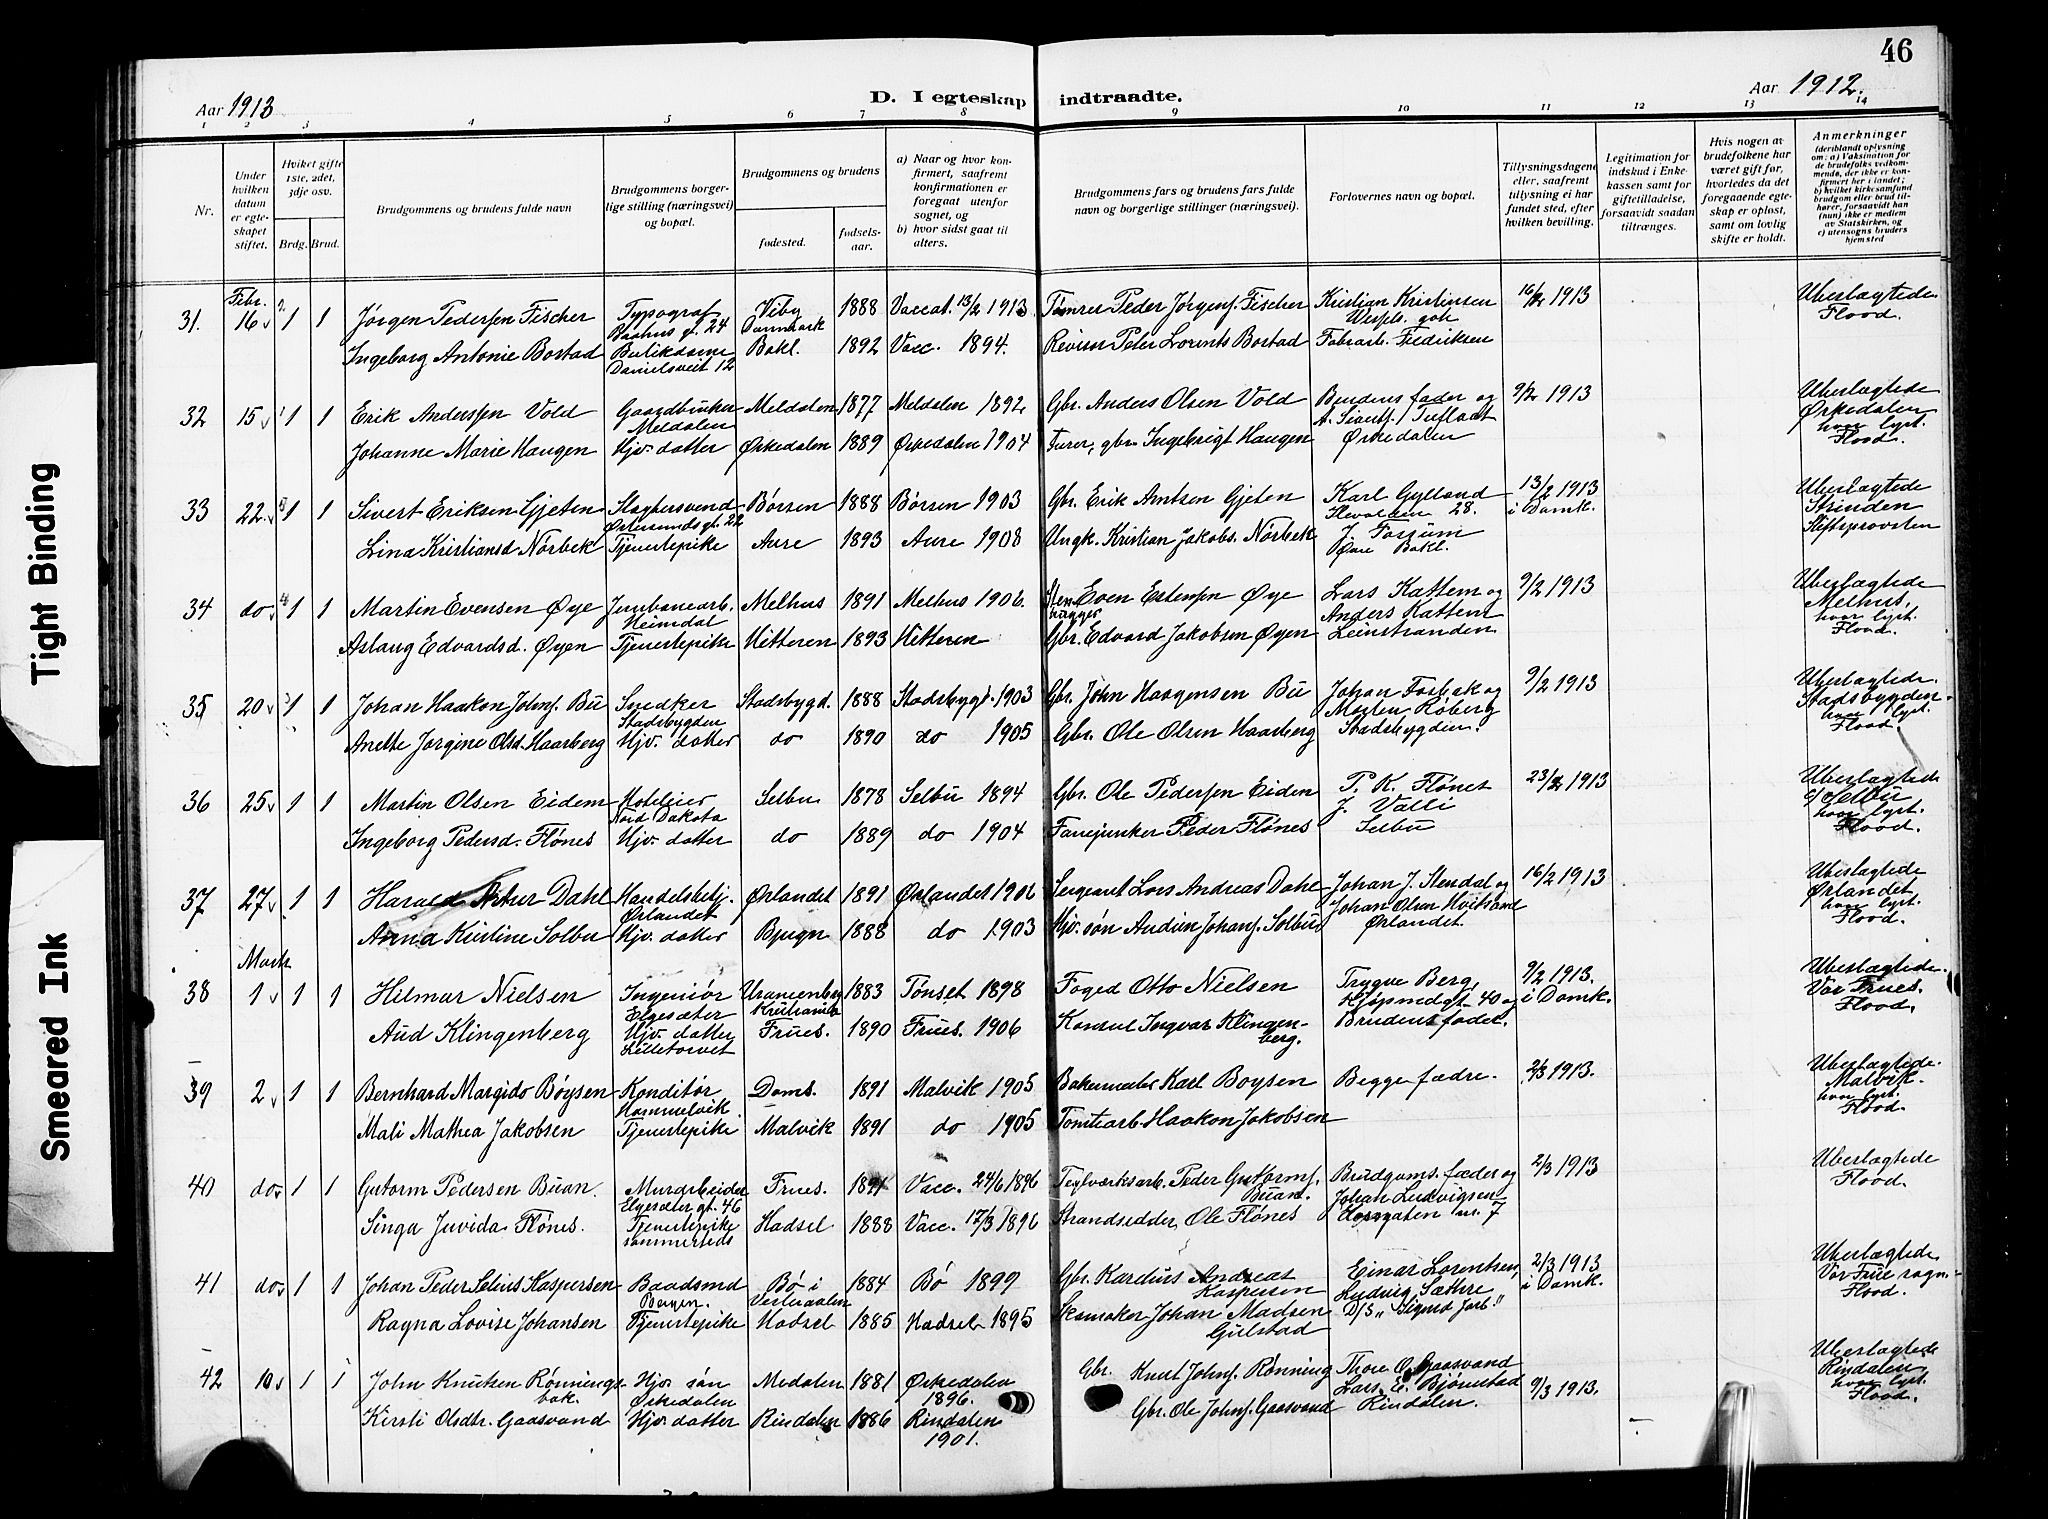 46
Aar 1913
D. I egteskap indtraadte.
Aar 1912.
1 2 3 4 5 6 7 8 9 10 11 12 13 14
Nr.
Under hvilken datum er egteskapet stiftet.
Hvilket gifte 1ste, 2det, 3dje osv.
Brdg. Brud.
Brudgommens og brudens fulde navn
Brudgommens borgerlige stilling (næringsvei) og bopæl.
Brudgommens og brudens
fødested.
fødselsaar.
a) Naar og hvor konfirmert, saafremt konfirmationen er foregaat utenfor sognet, og
b) hvor sidst gaat til alters.
Brudgommens fars og brudens fars fulde navn og borgerlige stillinger (næringsvei).
Forlovernes navn og bopæl.
Tillysningsdagene eller, saafremt tillysning ei har fundet sted, efter hvilken bevilling.
Legitimation for indskud i Enkekassen samt for giftetilladelse, forsaavidt saadan tiltrænges.
Hvis nogen av brudefolkene har været gift før, hvorledes da det foregaaende egteskap er opløst, samt om lovlig skifte er holdt.
Anmerkninger (deriblandt oplysning om: a) Vaksination for de brudefolks vedkommende, der ikke er konfirmert her i landet; b) hvilket kirkesamfund brudgom eller brud tilhører, forsaavidt han (hun) ikke er medlem av Statskirken, og c) utensogns bruders hjemsted
Febr.
31. 16 1 1 Jørgen Pedersen Fischer Typograf Viby Danmark 1888 Vaccat. 13/2 1913 Tømrer Peder Jørgens. Fischer Kristian Kristinsen 1913 Uberlagtede Flood.
Ingeborg Antonie Bostad Danielsveit 12 Bakl. 1892 Vacc. 1894. Revisor Peter Lorents Bostad Fabrarb. Fredriksen
32 15 1 1 Erik Anderssen Vold Gaardbruker Meldalen Meldalen 1877 Meldalen 1892 Gbr. Anders Olsen Vold Brudens fader og 9/2 1913 Uberlagtede Ørkedalen hvor lyst. Flood.
Johanne Marie Haugen Hjv. datter Ørkedalen 1889 Ørkedalen 1904 gbr. Ingebrigt Haugen Ørkedalen
33 22 1 1 Sivert Eriksen Gjeten Slagtersvend Børsen 1888 Børsen 1903 Gbr. Erik Arntsen Gjeten Karl Gylland 28. 13/2 1913 i Domk. Uberlagtede Strinden Stiftsprovsten
Lina Kristiansd Nørbek Tjenestepike Aure 1893 Aure 1908 Ungk. Kristian Jakobs. Nørbek J. Forsum Bakl.
34 do 1 1 Martin Evensen Øye Jernbanearb. Heimdal Melhus 1891 Melhus 1906. Stenhugger Even Estensen Øye Lars Kattem og Anders Kattem 9/2 1913 Uberlagtede Melhus, hvor lyst. Flood.
Aslaug Edvardsd. Øyen Tjenestepike Hitteren 1893 Hitteren Gbr. Edvard Jakobsen Øyen Leinstranden
35 20 1 1 Johan Haakon Johns. Bu Snedker Stadsbygden Stadsbygd. 1888 Stadsbygd. 1903 Gbr. John Haagensen Bu Johan Forbak og Morten Roberg 9/2 1913 Uberlagtede Stadsbygden hvor lyst. Flood.
Anette Jørgine Olsd. Haarberg Hjv. datter do 1890 do 1905 Gbr. Ole Olsen Haarberg Stadsbygden.
36 25 1 1 Martin Olsen Eidem Hoteleier Nord Dakota Selbu 1878 Selbu 1894 Gbr. Ole Pedersen Eiden P. K. Flønes J. Valli 23/2 1913 Uberlagtede Selbu hvor lyst. Flood.
Ingeborg Pedersd. Flønes Hjv. datter do 1889 do 1904 Fanejunker Peder Flønes Selbu
37 27 1 1 Harald Artur Dahl Handelsbetj. Ørlandet Ørlandet 1891 Ørlandet 1906 Sergeant Lars Andreas Dahl Johan J. Stendal og Johan Olsen Hviksand 16/2 1913 Uberlagtede Ørlandet, hvor lyst. Flood.
Anna Kirstine Solbu Hjv. datter Bjugn 1888 do 1903 Hjv. søn Audun Johans. Solbu Ørlandet.
Marts
38 1 1 1 Hilmar Nielsen Ingeniør Elgesæter Uranienborg Kristiania 1883 Tønset 1898 Foged Otto Nielsen Trygve Berg, Kjøpmdgt. 40 og 9/2 1913. i Domk. Uberlagtede. Vor Frues. Flood.
Aud Klingenberg Hjv. datter Lilletorvet Frues. 1890 Frues. 1906 Konsul Ingvar Klingenberg. Brudens fader.
39 2 1 1 Bernhard Margido Bøysen Konditor Hommelvik Doms. 1891 Malvik 1905 Bakermester Karl Boysen Begge fædre. 2/3 1913. Uberlagtede. Malvik. hvor lyst. Flood.
Mali Mathea Jakobsen Tjenestepike Malvik 1891 do 1905 Tomtearb. Haakon Jakobsen
40 do 1 1 Gutorm Pedersen Buan. Murarbeider Elgesæter gt. 46 Frues. 1891 Vacc. 24/6 1896 Teglværksarb. Peder Guttorms. Buan. Brudgoms. fader og Johan Ludvigsen 2/3 1913 Uberlagtede Flood.
Singa Juvida Flønes. Tjenestepike Hadsel 1888 Vacc. 17/3 1896 Strandsidder Ole Flønes nr. 7
41 do 1 1 Johan Peder Selius Kaspersen Baadsmd Bergen. Bø i Vesteraalen 1884 Bø 1899 Gbr. Kardius Andreas Kaspersen Einar Lorentsen, Ludvig Sæthre 2/3 1913 i Domk. Uberlagtede Vor Frue sogn. Flood.
Ragna Lovise Johansen Tjenestepike Hadsel 1885 Hadsel 1895 Skomaker Johan Madsen Gulstad D/S "Sigurd Jarl."
42 10 1 1 John Knutsen Rønningsbak. Hjv. søn Ørkedalen Medalen 1881 Ørkedalen 1896. Gbr. Knut Johns. Rønning Thore O. Gaasvand Lars E. Bjørnstad 9/3 1913. Uberlagtede Rindalen hvor lyst. Flood.
Kirsti Olsdtr. Gaasvand Hjv. datter Rindalen 1886 Rindalen 1901. Gbr. Ole Johns. Gaasvand Rindalen.
Tight Binding
Smeared Ink